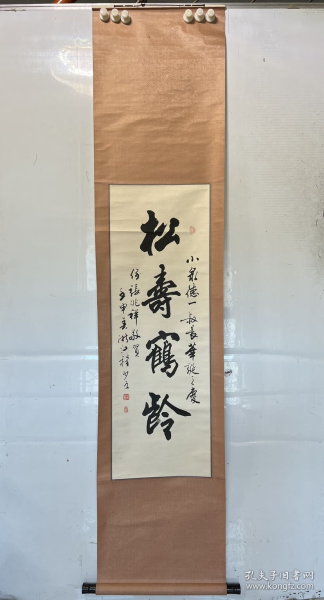 松壽鶴齡
小泉德一叔長華誕之慶
侄張兆祥敬賀
壬申
孔夫子旧书网
www.kongfz.com